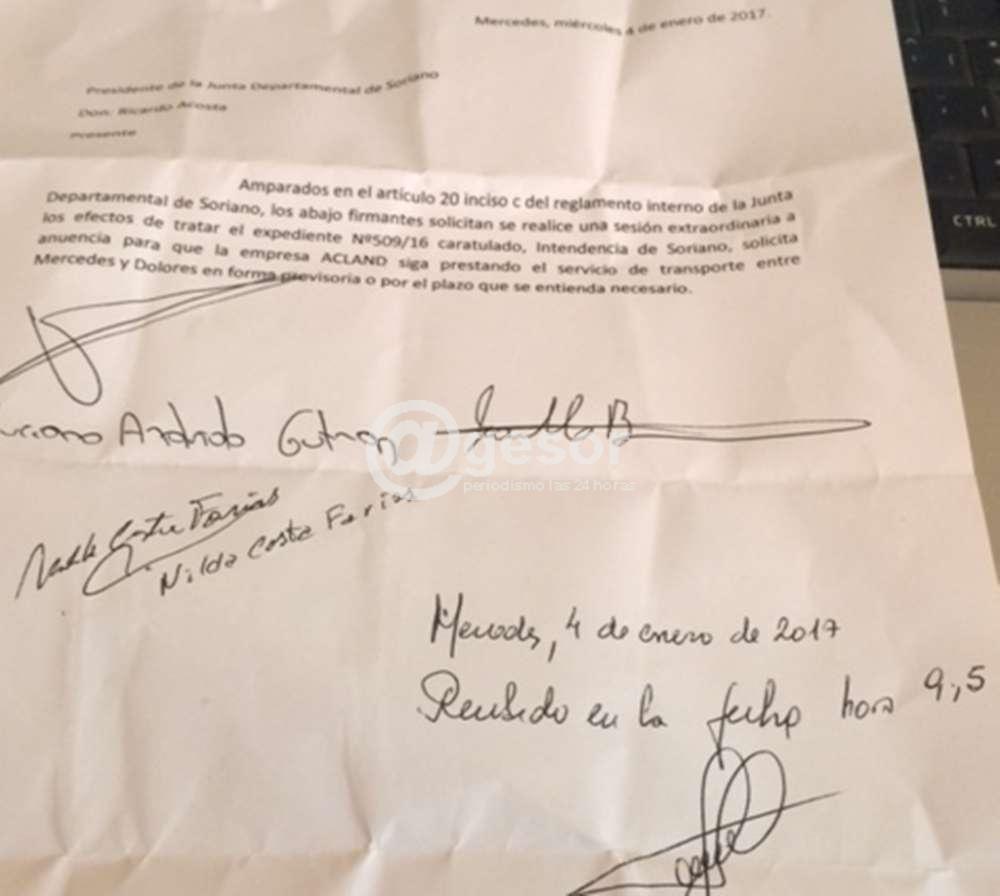 Mercedes, miércoles 4 de enero de 2017.
Presidente de la Junta Departamental de Soriano
Don: Ricardo Acosta
Presente
Amparados en el artículo 20 inciso c del reglamento interno de la Junta
Departamental de Soriano, los abajo firmantes solicitan se realice una sesión extraordinaria a
los efectos de tratar el expediente Nº509/16 caratulado, Intendencia de Soriano, solicita
anuencia para que la empresa ACLAND siga prestando el servicio de transporte entre
Mercedes y Dolores en forma provisoria o por el plazo que se entienda necesario.
@gesor
periodismo las 24 horas
Costa Farias
Nilda Costa Farias
Mercedes, 4 de enero de 2017
Recibido en la fecha hora 9,5
CTRL